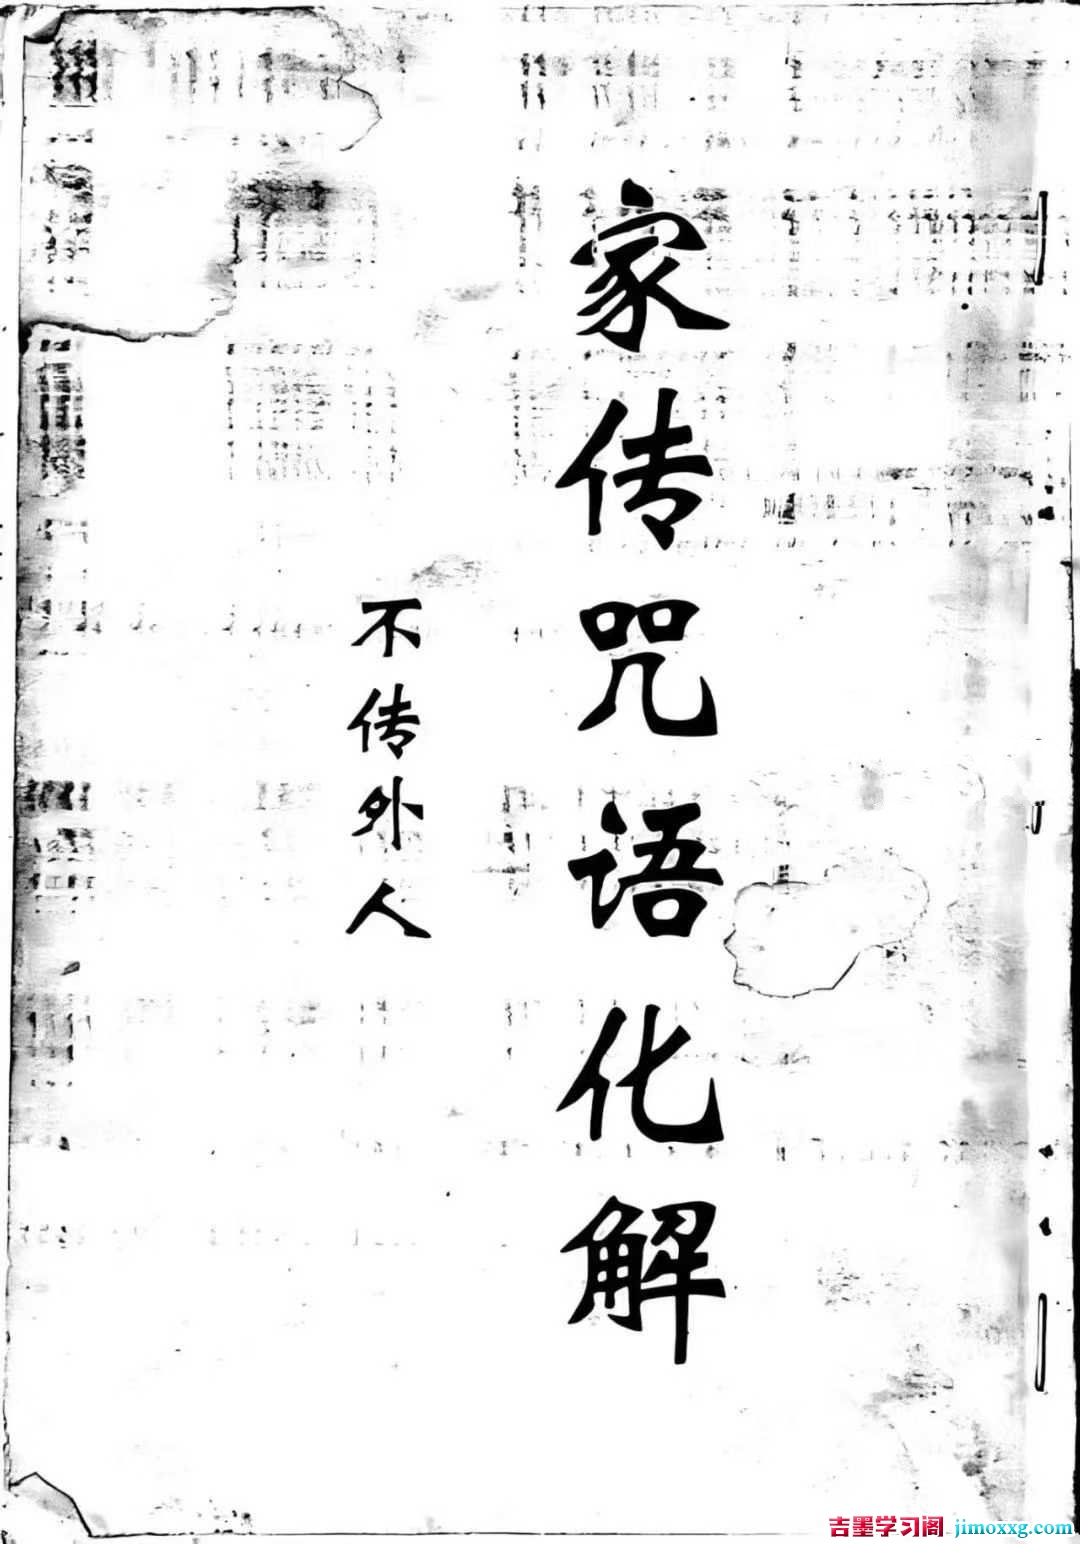 家传咒语化解
不传外人
吉墨学习阁 jimoxxg.com